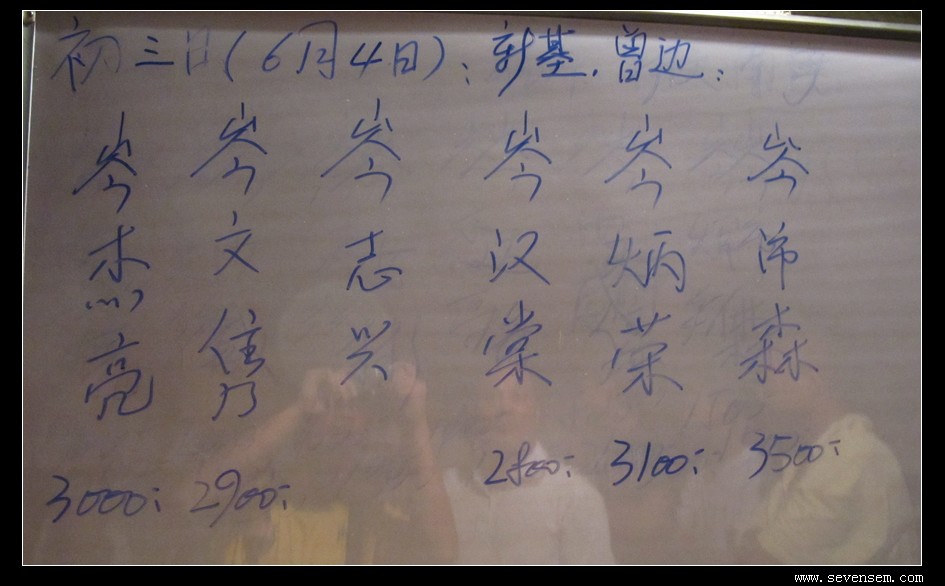 初三日（6月4日）：新基.曾边：
岑杰亮 3000:
岑文隽 2900:
岑志兴
岑汉棠 2800:
岑炳荣 3100:
岑沛森 3500:
www.sevensem.com